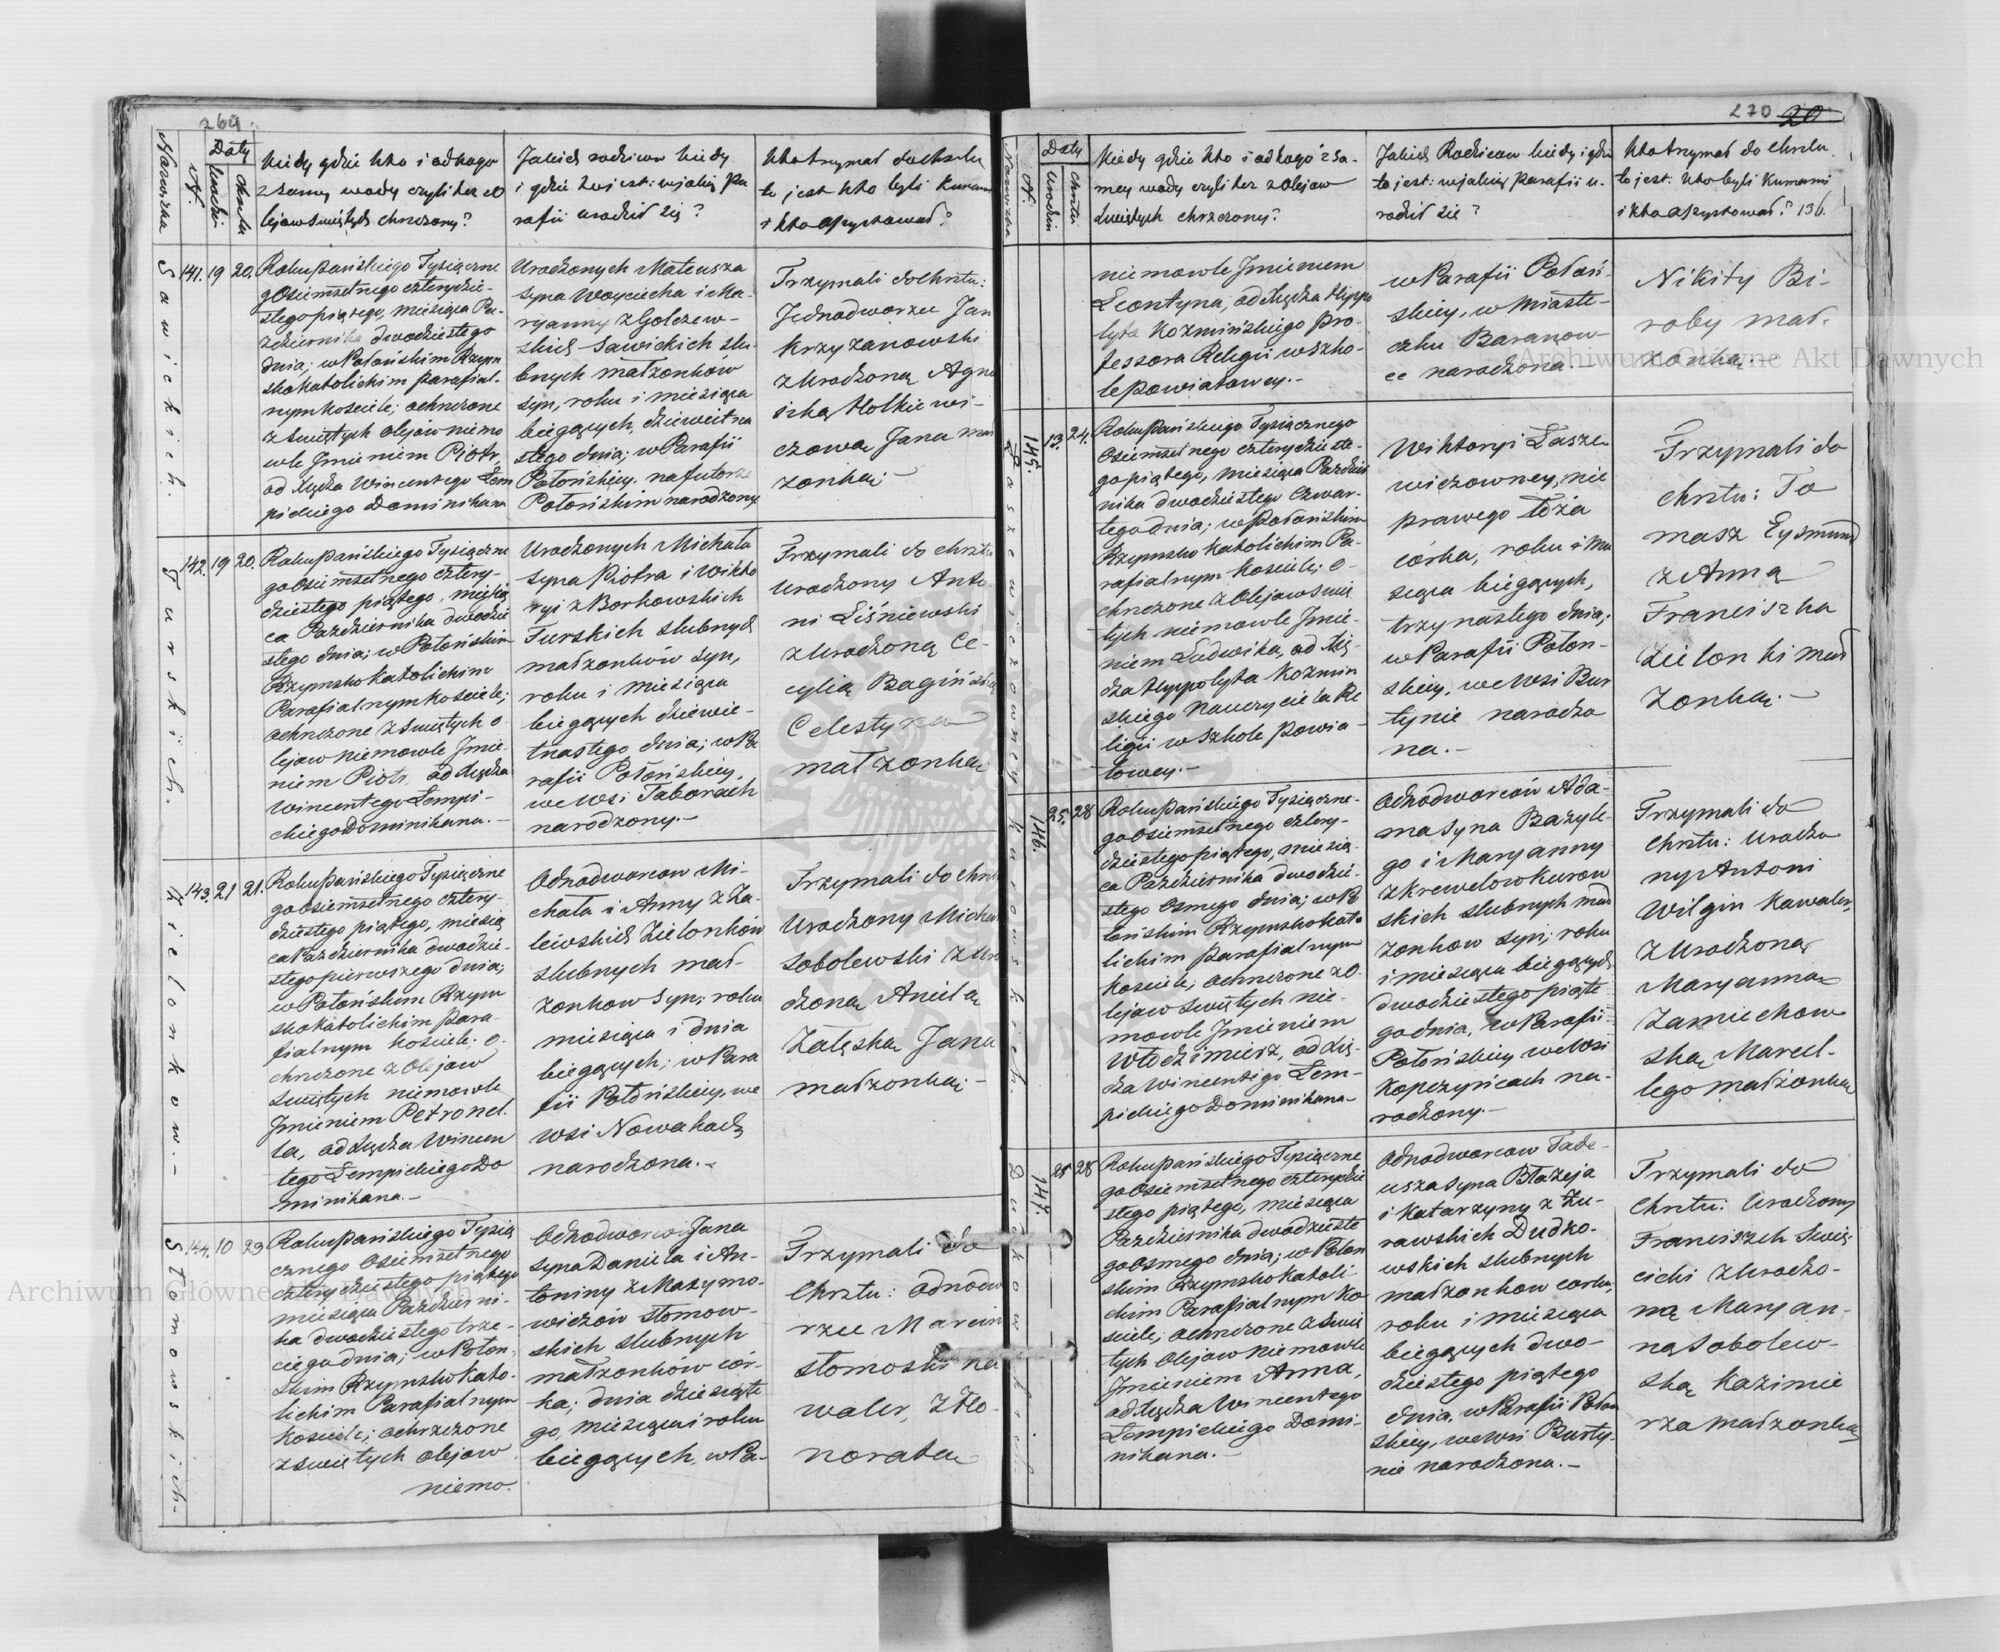 269.
Nazwiska
N.
Daty
Urodzin
Chrztu
Kiedy gdzie kto i od kogo
z samy wody czyli tez z O
lejow Swiętych chrzczony?
Jakich rodzicow kiedy
i gdzie to iest: w jakiey Pa
rafii urodził się?
Kto trzymał do chrztu
to jest kto byli Kumami
i kto assystował?
Sawickich.
141. 19 20.
Roku Pańskiego Tysiączne
go Osiemsetnego czterydzie-
stego piątego, miesiąca Pa-
zdziernika dwodziestego
dnia; w Połońskim Rzym
skokatolickim Parafial-
nym kosciele; ochrzczone
z Swiętych Olejów niemo
wle Jmieniem Piotr,
od Xiędza Wincentego Łem
pickiego Dominikana
Urodzonych Mateusza
syna Woyciecha i Ma-
ryanny z Golczew-
skich Sawickich slu-
bnych małzonków
syn, roku i miesiąca
biegących, dziewietna
stego dnia; w Parafii
Połońskiey, na futorze
Połońskim narodzony
Trzymali do chrztu:
Jednodworzec Jan
Krzyzanowski
z Urodzoną Agni
szką Holkiewi-
czowa Jana mał
zonką; -
Turskich.
142. 19 20.
Roku Pańskiego Tysiączne
go Osiemsetnego cztery-
dziestego piątego, miesią
ca Pazdziernika dwodzie
stego dnia; w Połońskim
Rzymskokatolickim
Parafialnym kosciele;
ochrzczone z Swiętych O
lejow niemowle Jmie-
niem Piotr, od Xiędza
Wincentego Łempi-
ckiego Dominikana. -
Urodzonych Michała
syna Piotra i Wikto
ryi z Borkowskich
Turskich slubnych
małzonków syn,
roku i miesiąca
biegących dziewie-
tnastego dnia; w Pa
rafii Połońskiey,
we wsi Taborach
narodzony. -
Trzymali do chrztu
Urodzony Anto
ni Liśniewski
z Urodzoną Ce-
cylią Bagińską
Celestyna
małzonką
Zielonkow. -
143. 21 21.
Roku Pańskiego Tysiączne
go Osiemsetnego cztery-
dziestego piątego, miesią
ca Pazdziernika dwodzie-
stego pierwszego dnia;
w Połońskim Rzym
skokatolickim Para-
fialnym kosciele; o-
chrzczone z Olejow
Swiętych niemowle
Jmieniem Petronel-
la, od Xiędza Wincen
tego Łempickiego Do
minikana. -
Odnodworcow Mi-
chała i Anny z Za-
lewskich Zielonków
slubnych mał-
zonkow syn; roku
miesiąca i dnia
biegących; w Para
fii Połońskiey, we
wsi Nowakach
narodzona. -
Trzymali do chrztu
Urodzony Michał
Sobolewski z Uro
dzoną Anielą
Załęską Jana
małzonką; -
Stomowskich. -
144. 10 23
Roku Pańskiego Tysią
cznego Osiemsetnego
czterydziestego piątego
miesiąca Pazdzierni-
ka dwodziestego trze-
ciego dnia; w Połon-
skim Rzymskokato-
lickim Parafialnym
kosciele; ochrzczone
z Swiętych Olejow
niemo-
Odnodworcow Jana
syna Daniela i An-
toniny z Maxymo-
wiczów Stomow-
skich slubnych
małzonkow cor-
ka; dnia dziesiąte
go, miesiąca i roku
biegących, w Pa-
Trzymali do
Chrztu: Odnodwo
rzec Marcin
Stomoski ka
waler, z Ho-
noratą
270 20
Nazwiska
N.
Daty
Urodzin
Chrztu
Kiedy gdzie kto i od kogo z Sa-
mey wody czyli tez z Olejow
Swiętych chrzczony?
Jakich Rodzicow kiedy i gdzie
to jest: w jakiey Parafii u-
rodził się?
Kto trzymał do Chrztu
to jest: kto byli Kumami
i kto assystował? 136.
niemowle Jmieniem
Leontyna, od Xiędza Hippo
lyta Kozmińskiego Pro-
fessora Religii w Szko-
le Powiatowey. -
w Parafii Połoń-
skiey, w Miaste-
czku Baranow-
ce narodzona. -
Nikity Bi-
roby mał-
zonką.
Łaszewiczowney
145. 13. 24.
Roku Pańskiego Tysiącznego
Osiemsetnego czterydzieste-
go piątego, miesiąca Pazdzier
nika dwodziestego czwar-
tego dnia; w Połońskim
Rzymsko Katolickim Pa-
rafialnym kosciele; o-
chrzczone z Olejow Swię
tych niemowle Jmie-
niem Ludwika, od Xię-
dza Hyppolyta Kozmin
skiego Nauczyciela Re
ligii w Szkole Powia-
towey. -
Wiktoryi Łasze-
wiczowney, nie
prawego łóża
córka, roku i mie
siąca biegących,
trzynastego dnia;
w Parafii Połon-
skiey, we wsi Bur
tynie narodzo
na. -
Trzymali do
chrztu: To
masz Eysmund
z Anną
Franciszka
Zielonki mał
zonką. -
Kurowskich.
146. 25. 28
Roku Pańskiego Tysiączne-
go Osiemsetnego cztery-
dziestego piątego, miesią
ca Pazdziernika dwodzie-
stego osmego dnia; w Po
łońskim Rzymskokato
lickim Parafialnym
kosciele; ochrzczone z O-
lejow Swiętych nie-
mowle Jmieniem
Włodzimierz, od Xię-
dza Wincentego Łem-
pickiego Dominikana -
Odnodworców Ada-
ma syna Bazyle-
go i Maryanny
z Krewelow Kurow
skich slubnych mał
zonkow syn; roku
i miesiąca biegących
dwodziestego piąte
go dnia, w Parafii
Połońskiey we wsi
Kopczyńcach na-
rodzony. -
Trzymali do
Chrztu: Urodzo
ny Antoni
Wilgin Kawaler,
z Urodzoną
Maryanną
Zamiechow
ską Marcel-
lego małzonką
Dudkowskich
147. 25 28
Roku Pańskiego Tysiączne
go Osiemsetnego czterydzie
stego piątego, miesiąca
Pazdziernika dwodzieste
go osmego dnia; w Połon
skim Rzymsko Katoli
ckim Parafialnym ko
sciele; ochrzczone z Swię
tych Olejow niemowle
Jmieniem Anna,
od Xiędza Wincentego
Łempickiego Domi-
nikana. -
Odnodworcow Tade-
usza syna Błażeja
i Katarzyny z Zu-
rawskich Dudko-
wskich slubnych
małzonkow corka,
roku i miesiąca
biegących dwo-
dziestego piątego
dnia, w Parafii Połon
skiey, we wsi Burty-
nie narodzona. -
Trzymali do
Chrztu: Urodzony
Franciszek Swię-
cicki z Urodzo-
ną Maryan-
ną Sobolew-
ską Kazimie
rza małzonką
Archiwum Główne Akt Dawnych
Archiwum Główne Akt Dawnych